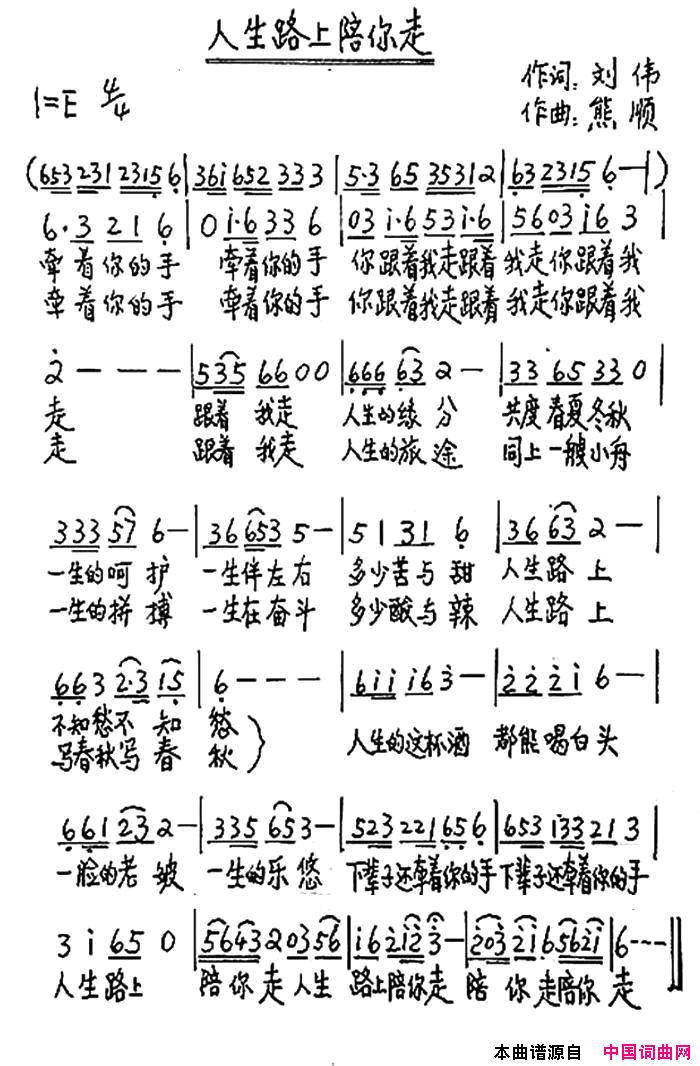 人生路上陪你走
作词:刘伟
1=E 4/4
作曲:熊顺
(653 231 2315 6|36i 652 333|5·3 65 35312|63 2315 6—|)
6·3 21 6|0 i·6 33 6|03 i·6 53 i·6|56 03 i6 3|
牵着你的手 牵着你的手 你跟着我走跟着 我走你跟着我
牵着你的手 牵着你的手 你跟着我走跟着 我走你跟着我
2———|535 66 0 0|666 63 2—|33 65 33 0|
走 跟着 我走 人生的缘 分 共度 春夏冬秋
走 跟着 我走 人生的旅 途 同上 一艘小舟
333 57 6—|36 653 5—|5 1 31 6|36 63 2—|
一生的呵 护 一生伴左右 多少苦与 甜 人生路 上
一生的拼 搏 一生在奋斗 多少酸与 辣 人生路 上
663 2·3 15|6———|6ii i6 3—|2 2 2 i 6—|
不知愁不 知 愁
写春秋写 春 秋} 人生的这杯酒 都能喝白头
661 23 2—|335 65 3—|523 221 65 6|653 i33 21 3|
一脸的老 皱 一生的乐 悠 下辈子还牵着你的手 下辈子还牵着你的手
3 i 65 0|5643 2 03 56|i6 212 3—|203 21 6 5621|6---‖
人生路上 陪你走 人生 路上陪你走 陪 你走陪你 走
本曲谱源自 中国词曲网